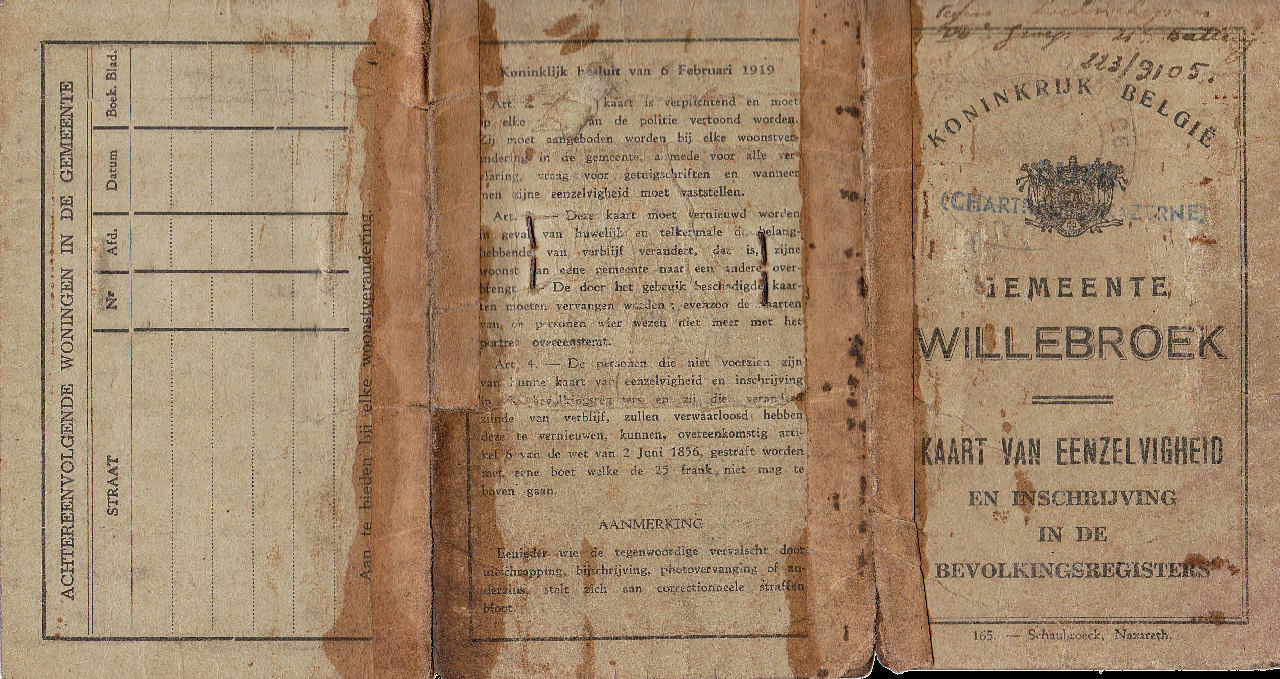 ACHTEREENVOLGENDE WONINGEN IN DE GEMEENTE
STRAAT Nr Afd. Datum Boek. Blad.
Aan te bieden bij elke woonstverandering.
Koninklijk besluit van 6 Februari 1919
Art. 2 — kaart is verplichtend en moet
op elke van de politie vertoond worden.
Zij moet aangeboden worden bij elke woonstver-
andering in de gemeente, alsmede voor alle ver-
klaring, vraag voor getuigschriften en wanneer
men zijne eenzelvigheid moet vaststellen.
Art. — Deze kaart moet vernieuwd worden
in geval van huwelijk en telkenmale de belang-
hebbende van verblijf verandert, dat is, zijne
woonst van eene gemeente naar een andere over-
brengt — De door het gebruik beschadigde kaar-
ten moeten vervangen worden ; evenzoo de kaarten
van de personen wier wezen niet meer met het
portret overeenstemt.
Art. 4. — De personen die niet voorzien zijn
van hunne kaart van eenzelvigheid en inschrijving
in de bevolkingsregisters en zij die, veranderd
zijnde van verblijf, zullen verwaarloosd hebben
deze te vernieuwen, kunnen, overeenkomstig arti-
kel 6 van de wet van 2 Juni 1856, gestraft worden
met eene boet welke de 25 frank niet mag te
boven gaan.
AANMERKING
Eenieder wie de tegenwoordige vervalscht door
uitschrapping, bijschrijving, photovervanging of an-
derzins, stelt zich aan correctionneele straffen
bloot.
223/9105.
KONINKRIJK BELGIË
GEMEENTE
WILLEBROEK
KAART VAN EENZELVIGHEID
EN INSCHRIJVING
IN DE
BEVOLKINGSREGISTERS
165. — Schaubroeck, Nazareth.